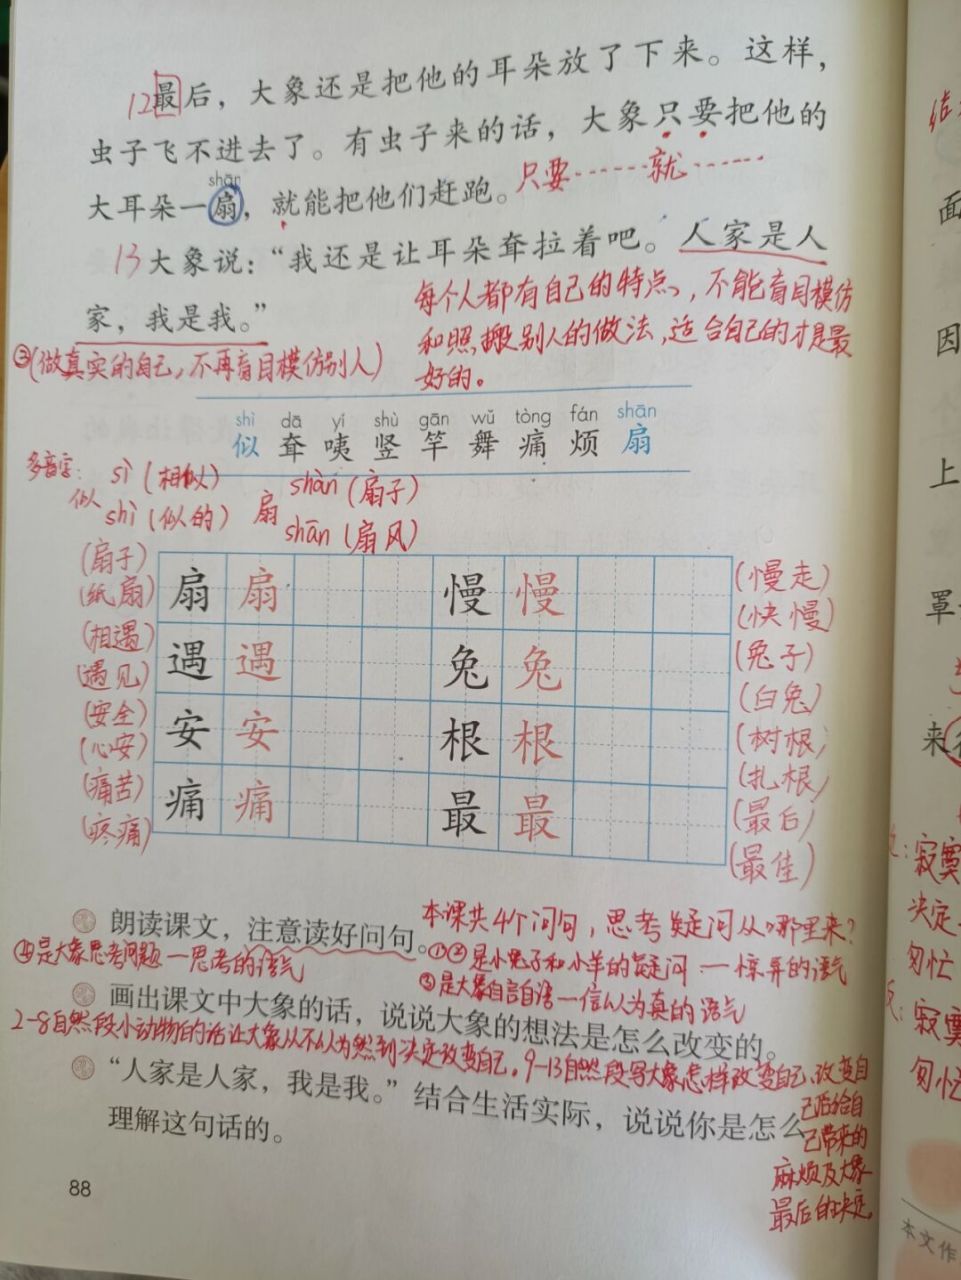 12最后，大象还是把他的耳朵放了下来。这样，
虫子飞不进去了。有虫子来的话，大象只要把他的
shān
大耳朵一扇，就能把他们赶跑。
只要……就……
13大象说：“我还是让耳朵耷拉着吧。人家是人
家，我是我。”
每个人都有自己的特点，不能盲目模仿
和照搬别人的做法，适合自己的才是最
好的。
②(做真实的自己，不再盲目模仿别人)
shì dā yí shù gān wǔ tòng fán shān
似 耷 咦 竖 竿 舞 痛 烦 扇
多音字：
似
sì (相似)
shì (似的)
扇
shàn (扇子)
shān (扇风)
(扇子)
(纸扇)
扇 扇 慢 慢
(慢走)
(快慢)
(相遇)
(遇见)
遇 遇 兔 兔
(兔子)
(白兔)
(安全)
(心安)
安 安 根 根
(树根)
(扎根)
(痛苦)
(疼痛)
痛 痛 最 最
(最后)
(最佳)
朗读课文，注意读好问句。
本课共4个问句，思考疑问从哪里来？
①②是小兔子和小羊的疑问—惊异的语气
③是大象自言自语—信以为真的语气
④是大象思考问题—思考的语气
画出课文中大象的话，说说大象的想法是怎么改变的。
2-8自然段小动物的话让大象从不以为然到决定改变自己。9-13自然段写大象怎样改变自己、改变自
己后给自
己带来的
麻烦及大象
最后的决定。
“人家是人家，我是我。”结合生活实际，说说你是怎么
理解这句话的。
88
面
因
个
上
罩
来
寂寞
决定
匆忙
寂寞
匆忙
本文作